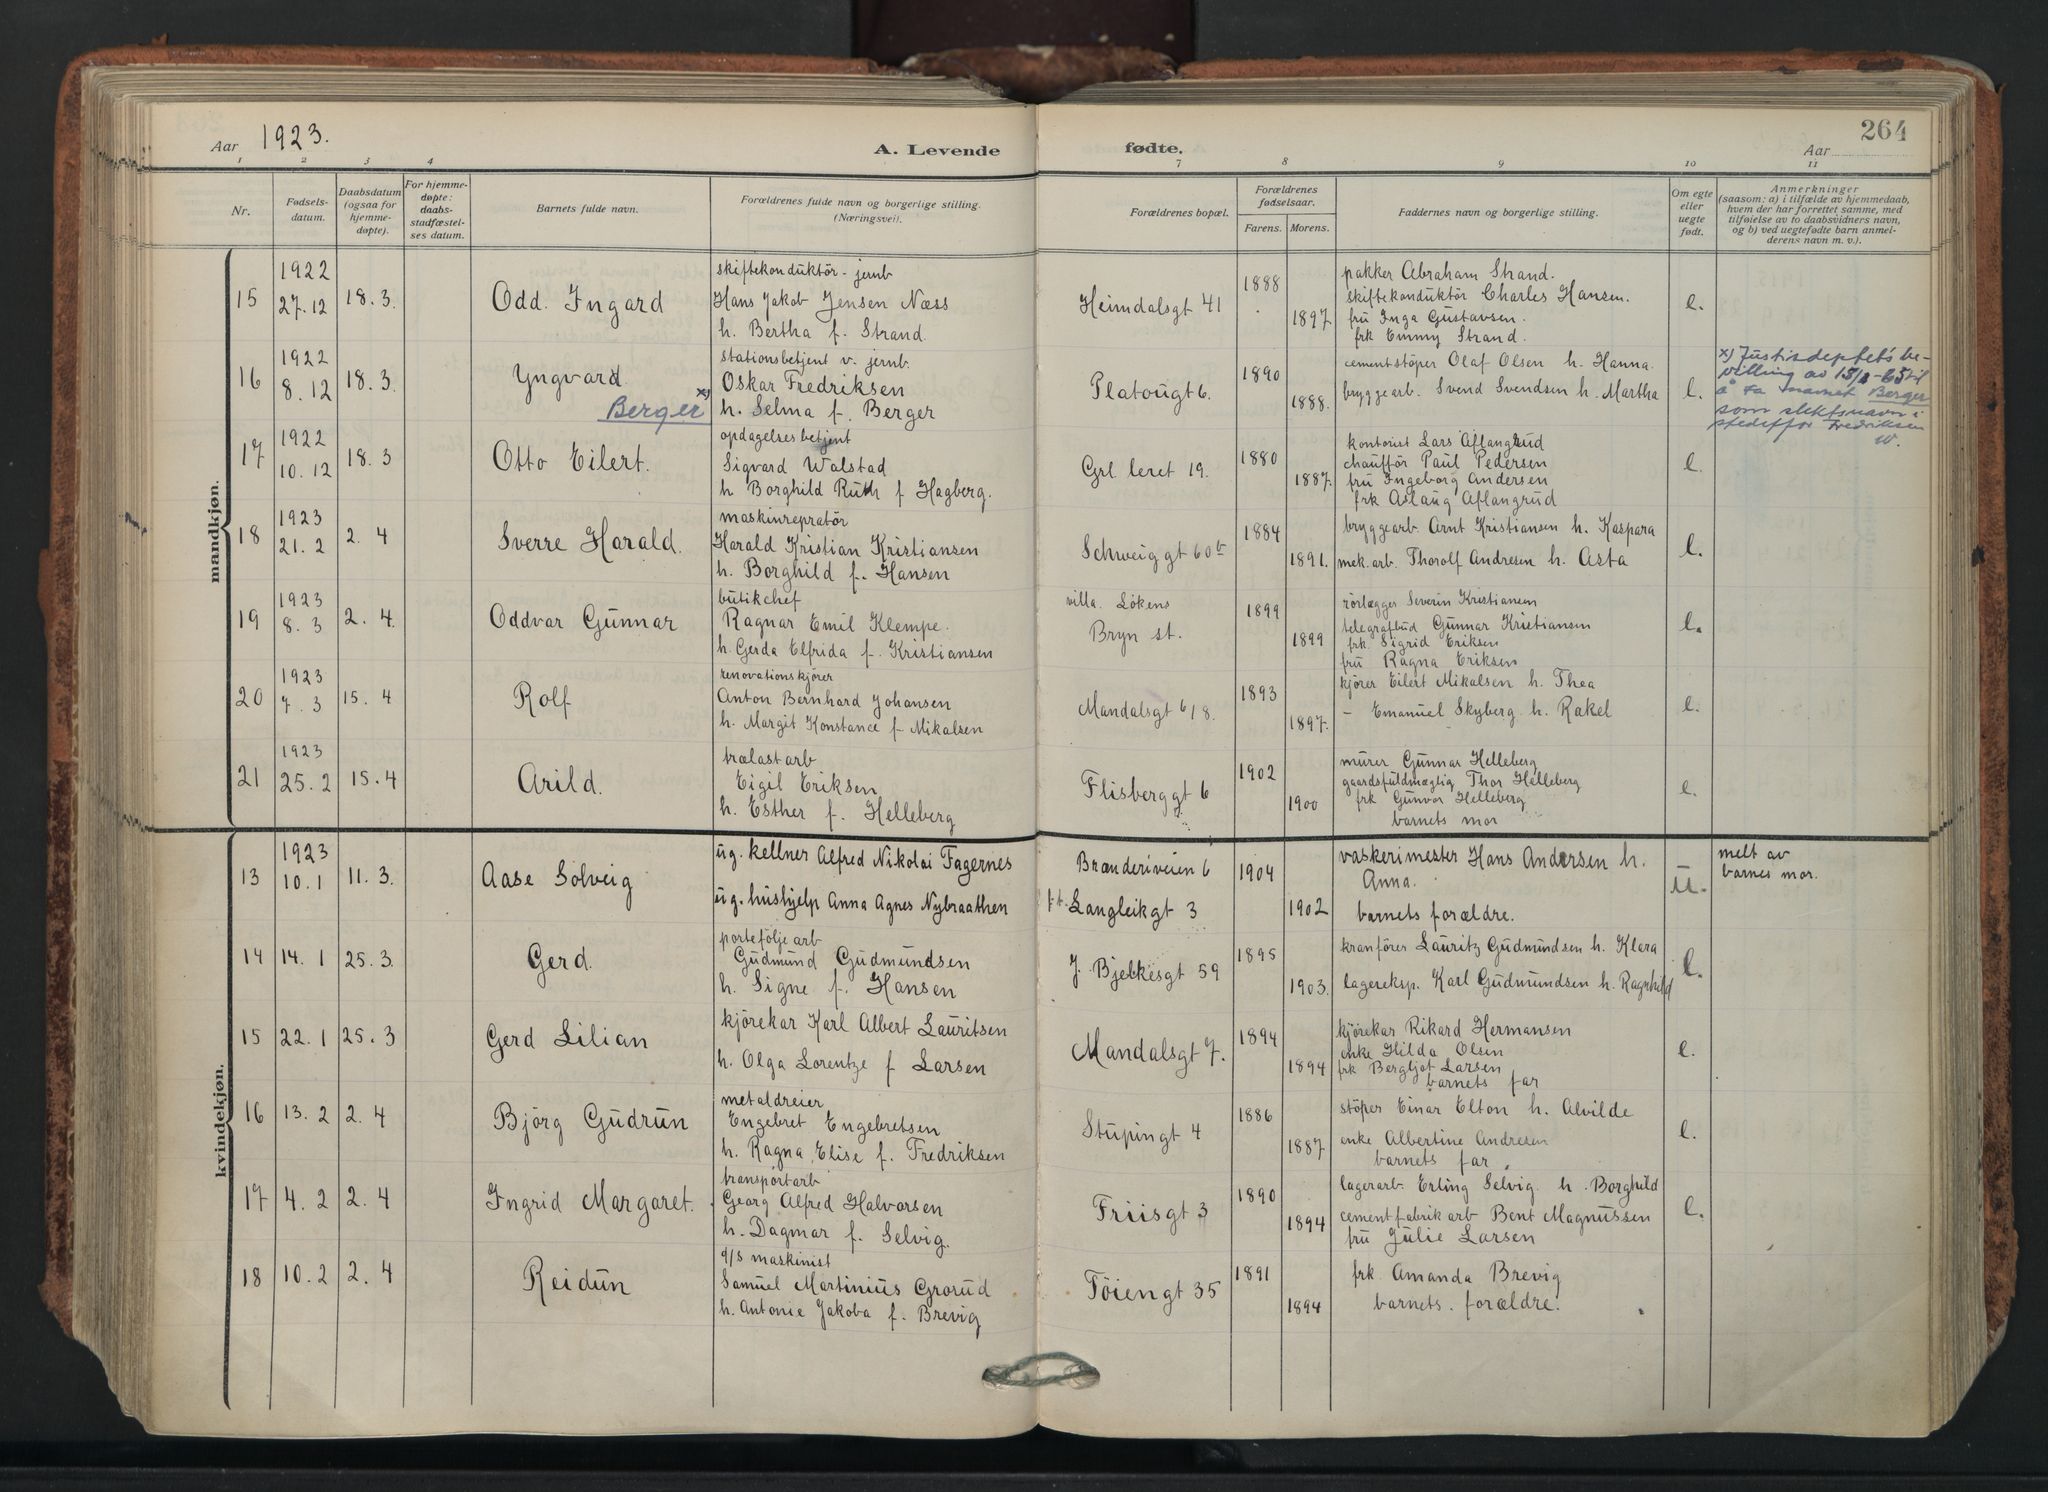 264
Aar 1923.
A. Levende fødte.
Aar
1 2 3 4 7 8 9 10 11
Nr.
Fødsels-
datum.
Daabsdatum
(ogsaa for
hjemme-
døpte).
For hjemme-
døpte:
daabs-
stadfæstel-
ses datum.
Barnets fulde navn.
Forældrenes fulde navn og borgerlige stilling.
(Næringsvei).
Forældrenes bopæl.
Forældrenes
fødselsaar.
Farens. Morens.
Faddernes navn og borgerlige stilling.
Om egte
eller
uegte
født.
Anmerkninger
(saasom: a) i tilfælde av hjemmedaab,
hvem der har forrettet samme, med
tilføielse av to daabsvidners navn,
og b) ved uegtefødte barn anmel-
derens navn m. v.).
mandkjøn.
15
1922
27.12
18.3.
Odd. Ingard
skiftekonduktör - jernb
Hans Jakob Jensen Næss
h. Bertha f. Strand.
Heimdalsgt 41
1888
1897.
pakker Abraham Strand.
skiftekonduktör Charles Hansen.
frü Inga Gustavsen.
frk Emmy Strand.
e.
16
1922
8.12
18.3.
Yngvard
Berger x)
stationsbetjent v. jernb.
Oskar Fredriksen
h. Selma f. Berger
Platougt 6.
1890
1888.
cementstöper Olaf Olsen h. Hanna.
bryggearb. Svend Svendsen h. Martha
e.
x) Justisdeptets be-
villing av 15/2-65 til
å ta navnet Berger
som slektsnavn i
stedetfor Fredriksen
W.
17
1922
10.12
18.3
Otto Eilert.
opdagelsesbetjent
Sigvard Walstad
h Borghild Ruth f Hagberg.
Grl leret 19.
1880
1887.
kontorist Lars Aflangrud
chaufför Paul Pedersen
frü Ingeborg Andersen
frk Aslaug Aflangrüd
e.
18
1923
21.2
2.4
Sverre Harald.
maskinrepratör
Harald Kristian Kristiansen
h. Borghild f. Hansen
Schweiggt 60b
1884
1891.
bryggearb Arnt Kristiansen h. Kaspara
mek. arb. Thorolf Andresen h. Asta
e.
19
1923
8.3
2.4.
Oddvar Günnar
butikchef
Ragnar Emil Klempe.
h. Gerda Elfrida f. Kristiansen
villa. Lökens
Bryn st.
1899
1899
rörlægger Severin Kristiansen
telegrafbud Günnar Kristiansen
frk. Sigrid Eriksen
frü Ragna Eriksen
e.
20
1923
7.3
15.4
Rolf
renovationskjörer
Anton Bernhard Johansen
h. Margit Konstance f. Mikalsen
Mandalsgt 6/8.
1893
1897.
kjörer Eilert Mikalsen h. Thea
- Emanuel Skyberg. h. Rakel
e.
21
1923
25.2
15.4
Arild.
trælastarb
Eigil Eriksen
h. Esther f. Helleberg
Flisberggt 6
1902
1900
mürer Günnar Helleberg
gaardsfuldmægtig Thor Helleberg
frk Günvor Helleberg
barnets mor
e.
kvindekjøn.
13
1923
10.1
11.3.
Aase Solveig
üg. kellner Alfred Nikolai Fagernes
üg. hushjelp Anna Agnes Nybraathen
Branderiveien 6
f.t. Langleikgt 3
1904
1902
vaskerimester Hans Andersen h.
Anna.
barnets forældre.
u.
melt av
barnes mor.
14
14.1
25.3.
Gerd.
portefölje arb
Güdmünd Güdmündsen
h. Signe f. Hansen
J. Bjelkesgt 59
1895
1903.
kranförer Lauritz Güdmundsen h. Klara
lagereksp. Karl Güdmundsen h. Ragnhild
e.
15
22.1
25.3
Gerd Lilian
kjörekar Karl Albert Lauritsen
h. Olga Lorentze f Larsen
Mandalsgt 7.
1894
1894
kjörekar Rikard Hermansen
enke Hilda Olsen
frk Bergljot Larsen
barnets far
e.
16
13.2
2.4
Björg Güdrün
metaldreier
Engebret Engebretsen
h. Ragna Elise f. Fredriksen
Stüpingt 4
1886
1887
stöper Einar Elton h. Alvilde
enke Albertine Andresen
barnets far
e.
17
4.2
2.4
Ingrid Margaret.
transportarb
Georg Alfred Halvorsen
h. Dagmar f. Selvig.
Friisgt 3
1890
1894
lagerarb Erling Selvig. h. Borghild
cementfabrik arb Bent Magnussen
frü Julie Larsen
e.
18
10.2
2.4
Reidün
d/s maskinist
Samuel Martinius Grorüd
h. Antonie Jakoba f. Brevig
Töiengt 35
1891
1894
frk. Amanda Brevig
barnets. forældre.